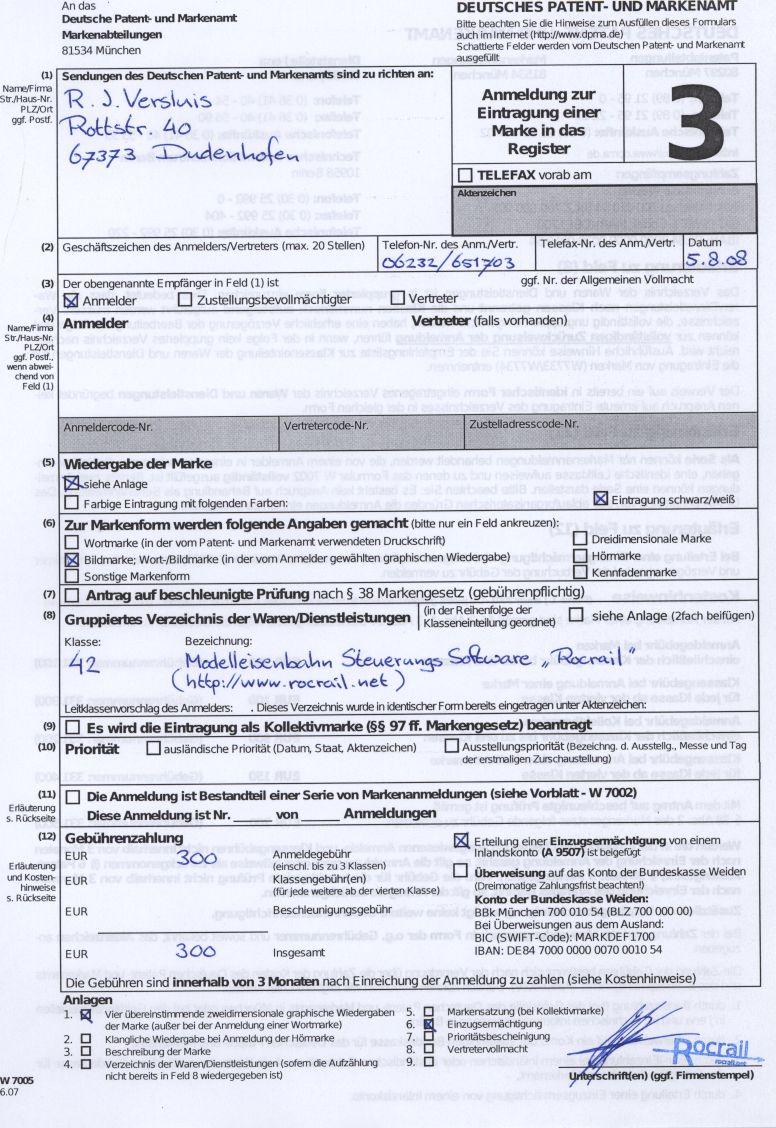 An das
Deutsche Patent- und Markenamt
Markenabteilungen
81534 München
DEUTSCHES PATENT- UND MARKENAMT
Bitte beachten Sie die Hinweise zum Ausfüllen dieses Formulars
auch im Internet (http://www.dpma.de)
Schattierte Felder werden vom Deutschen Patent- und Markenamt
ausgefüllt
(1) Sendungen des Deutschen Patent- und Markenamts sind zu richten an:
Name/Firma
Str./Haus-Nr.
PLZ/Ort
ggf. Postf.
R. J. Versluis
Rottstr. 40
67373 Dudenhofen
Anmeldung zur
Eintragung einer
Marke in das
Register
3
TELEFAX vorab am
Aktenzeichen
(2) Geschäftszeichen des Anmelders/Vertreters (max. 20 Stellen)
Telefon-Nr. des Anm./Vertr.
06232/651703
Telefax-Nr. des Anm./Vertr.
Datum
5.8.08
(3) Der obengenannte Empfänger in Feld (1) ist
ggf. Nr. der Allgemeinen Vollmacht
Anmelder Zustellungsbevollmächtigter Vertreter
(4) Anmelder Vertreter (falls vorhanden)
Name/Firma
Str./Haus-Nr.
PLZ/Ort
ggf. Postf.,
wenn abwei-
chend von
Feld (1)
Anmeldercode-Nr. Vertretercode-Nr. Zustelladresscode-Nr.
(5) Wiedergabe der Marke
siehe Anlage
Farbige Eintragung mit folgenden Farben:
Eintragung schwarz/weiß
(6) Zur Markenform werden folgende Angaben gemacht (bitte nur ein Feld ankreuzen):
Wortmarke (in der vom Patent- und Markenamt verwendeten Druckschrift)
Bildmarke; Wort-/Bildmarke (in der vom Anmelder gewählten graphischen Wiedergabe)
Sonstige Markenform
Dreidimensionale Marke
Hörmarke
Kennfadenmarke
(7) Antrag auf beschleunigte Prüfung nach § 38 Markengesetz (gebührenpflichtig)
(8) Gruppiertes Verzeichnis der Waren/Dienstleistungen
(in der Reihenfolge der
Klasseneinteilung geordnet)
siehe Anlage (2fach beifügen)
Klasse: Bezeichnung:
42 Modelleisenbahn Steuerungs Software „Rocrail"
(http://www.rocrail.net)
Leitklassenvorschlag des Anmelders: . Dieses Verzeichnis wurde in identischer Form bereits eingetragen unter Aktenzeichen:
(9) Es wird die Eintragung als Kollektivmarke (§§ 97 ff. Markengesetz) beantragt
(10) Priorität
ausländische Priorität (Datum, Staat, Aktenzeichen)
Ausstellungspriorität (Bezeichng. d. Ausstellg., Messe und Tag
der erstmaligen Zurschaustellung)
(11) Die Anmeldung ist Bestandteil einer Serie von Markenanmeldungen (siehe Vorblatt - W 7002)
Erläuterung
s. Rückseite
Diese Anmeldung ist Nr. ____ von ____ Anmeldungen
(12) Gebührenzahlung
Erläuterung
und Kosten-
hinweise
s. Rückseite
EUR 300 Anmeldegebühr
(einschl. bis zu 3 Klassen)
EUR Klassengebühr(en)
(für jede weitere ab der vierten Klasse)
EUR Beschleunigungsgebühr
EUR 300 Insgesamt
Erteilung einer Einzugsermächtigung von einem
Inlandskonto (A 9507) ist beigefügt
Überweisung auf das Konto der Bundeskasse Weiden
(Dreimonatige Zahlungsfrist beachten!)
Konto der Bundeskasse Weiden:
BBk München 700 010 54 (BLZ 700 000 00)
Bei Überweisungen aus dem Ausland:
BIC (SWIFT-Code): MARKDEF1700
IBAN: DE84 7000 0000 0070 0010 54
Die Gebühren sind innerhalb von 3 Monaten nach Einreichung der Anmeldung zu zahlen (siehe Kostenhinweise)
Anlagen
1. Vier übereinstimmende zweidimensionale graphische Wiedergaben
der Marke (außer bei der Anmeldung einer Wortmarke)
2. Klangliche Wiedergabe bei Anmeldung der Hörmarke
3. Beschreibung der Marke
4. Verzeichnis der Waren/Dienstleistungen (sofern die Aufzählung
nicht bereits in Feld 8 wiedergegeben ist)
5. Markensatzung (bei Kollektivmarke)
6. Einzugsermächtigung
7. Prioritätsbescheinigung
8. Vertretervollmacht
9.
Rocrail
Unterschrift(en) (ggf. Firmenstempel)
W 7005
6.07